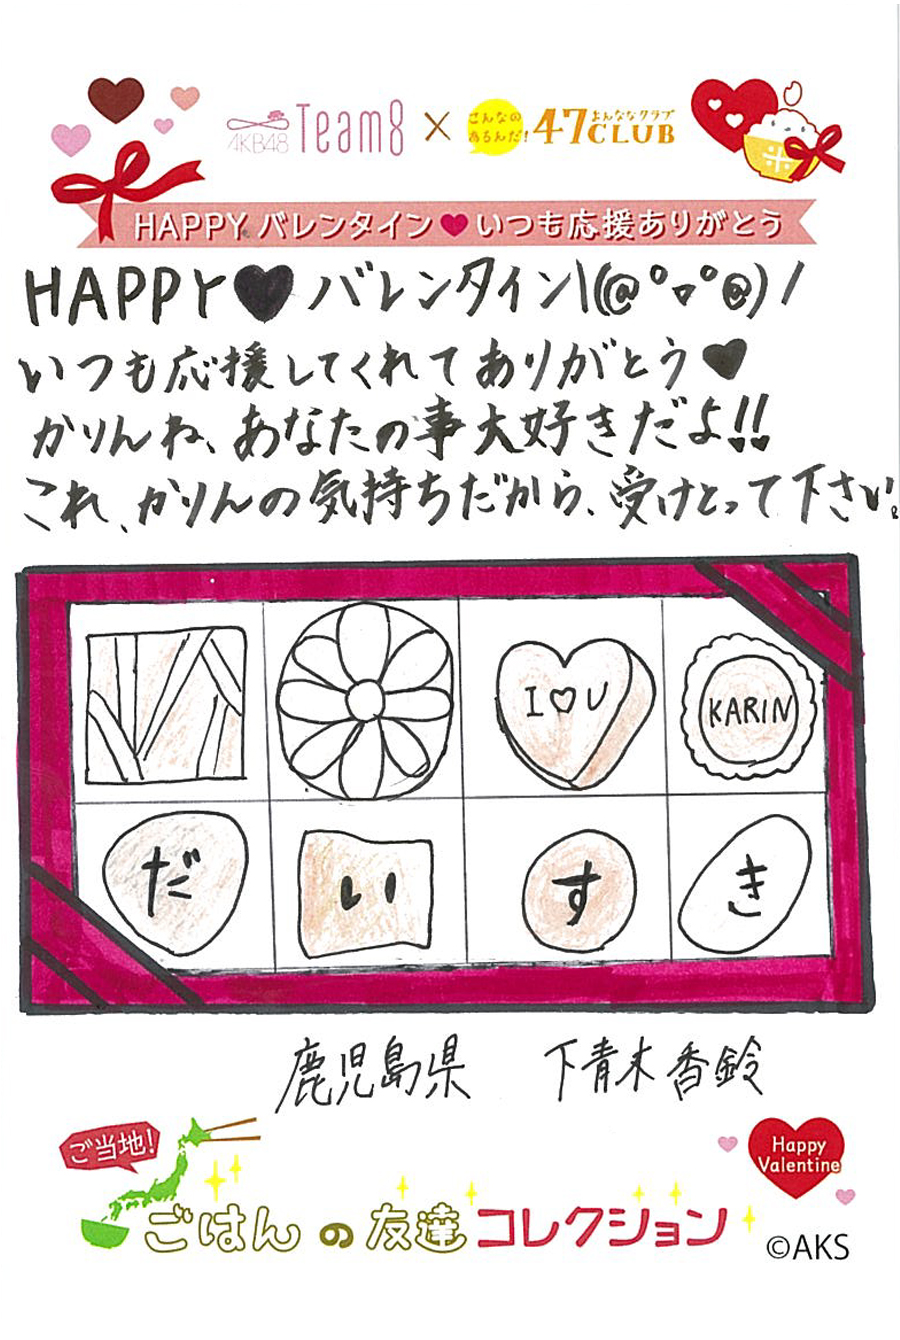 AKB48 Team8 × こんなの あるんだ! 47CLUB よんななクラブ
HAPPY バレンタイン♥いつも応援ありがとう
HAPPY♥バレンタイン\(@°▿°@)/
いつも応援してくれてありがとう♥
かりんね、あなたの事大好きだよ!!
これ、かりんの気持ちだから、受けとって下さい。
I♡U
KARIN
だ い す き
鹿児島県 下青木香鈴
ご当地!
Happy
Valentine
ごはんの友達コレクション
©AKS